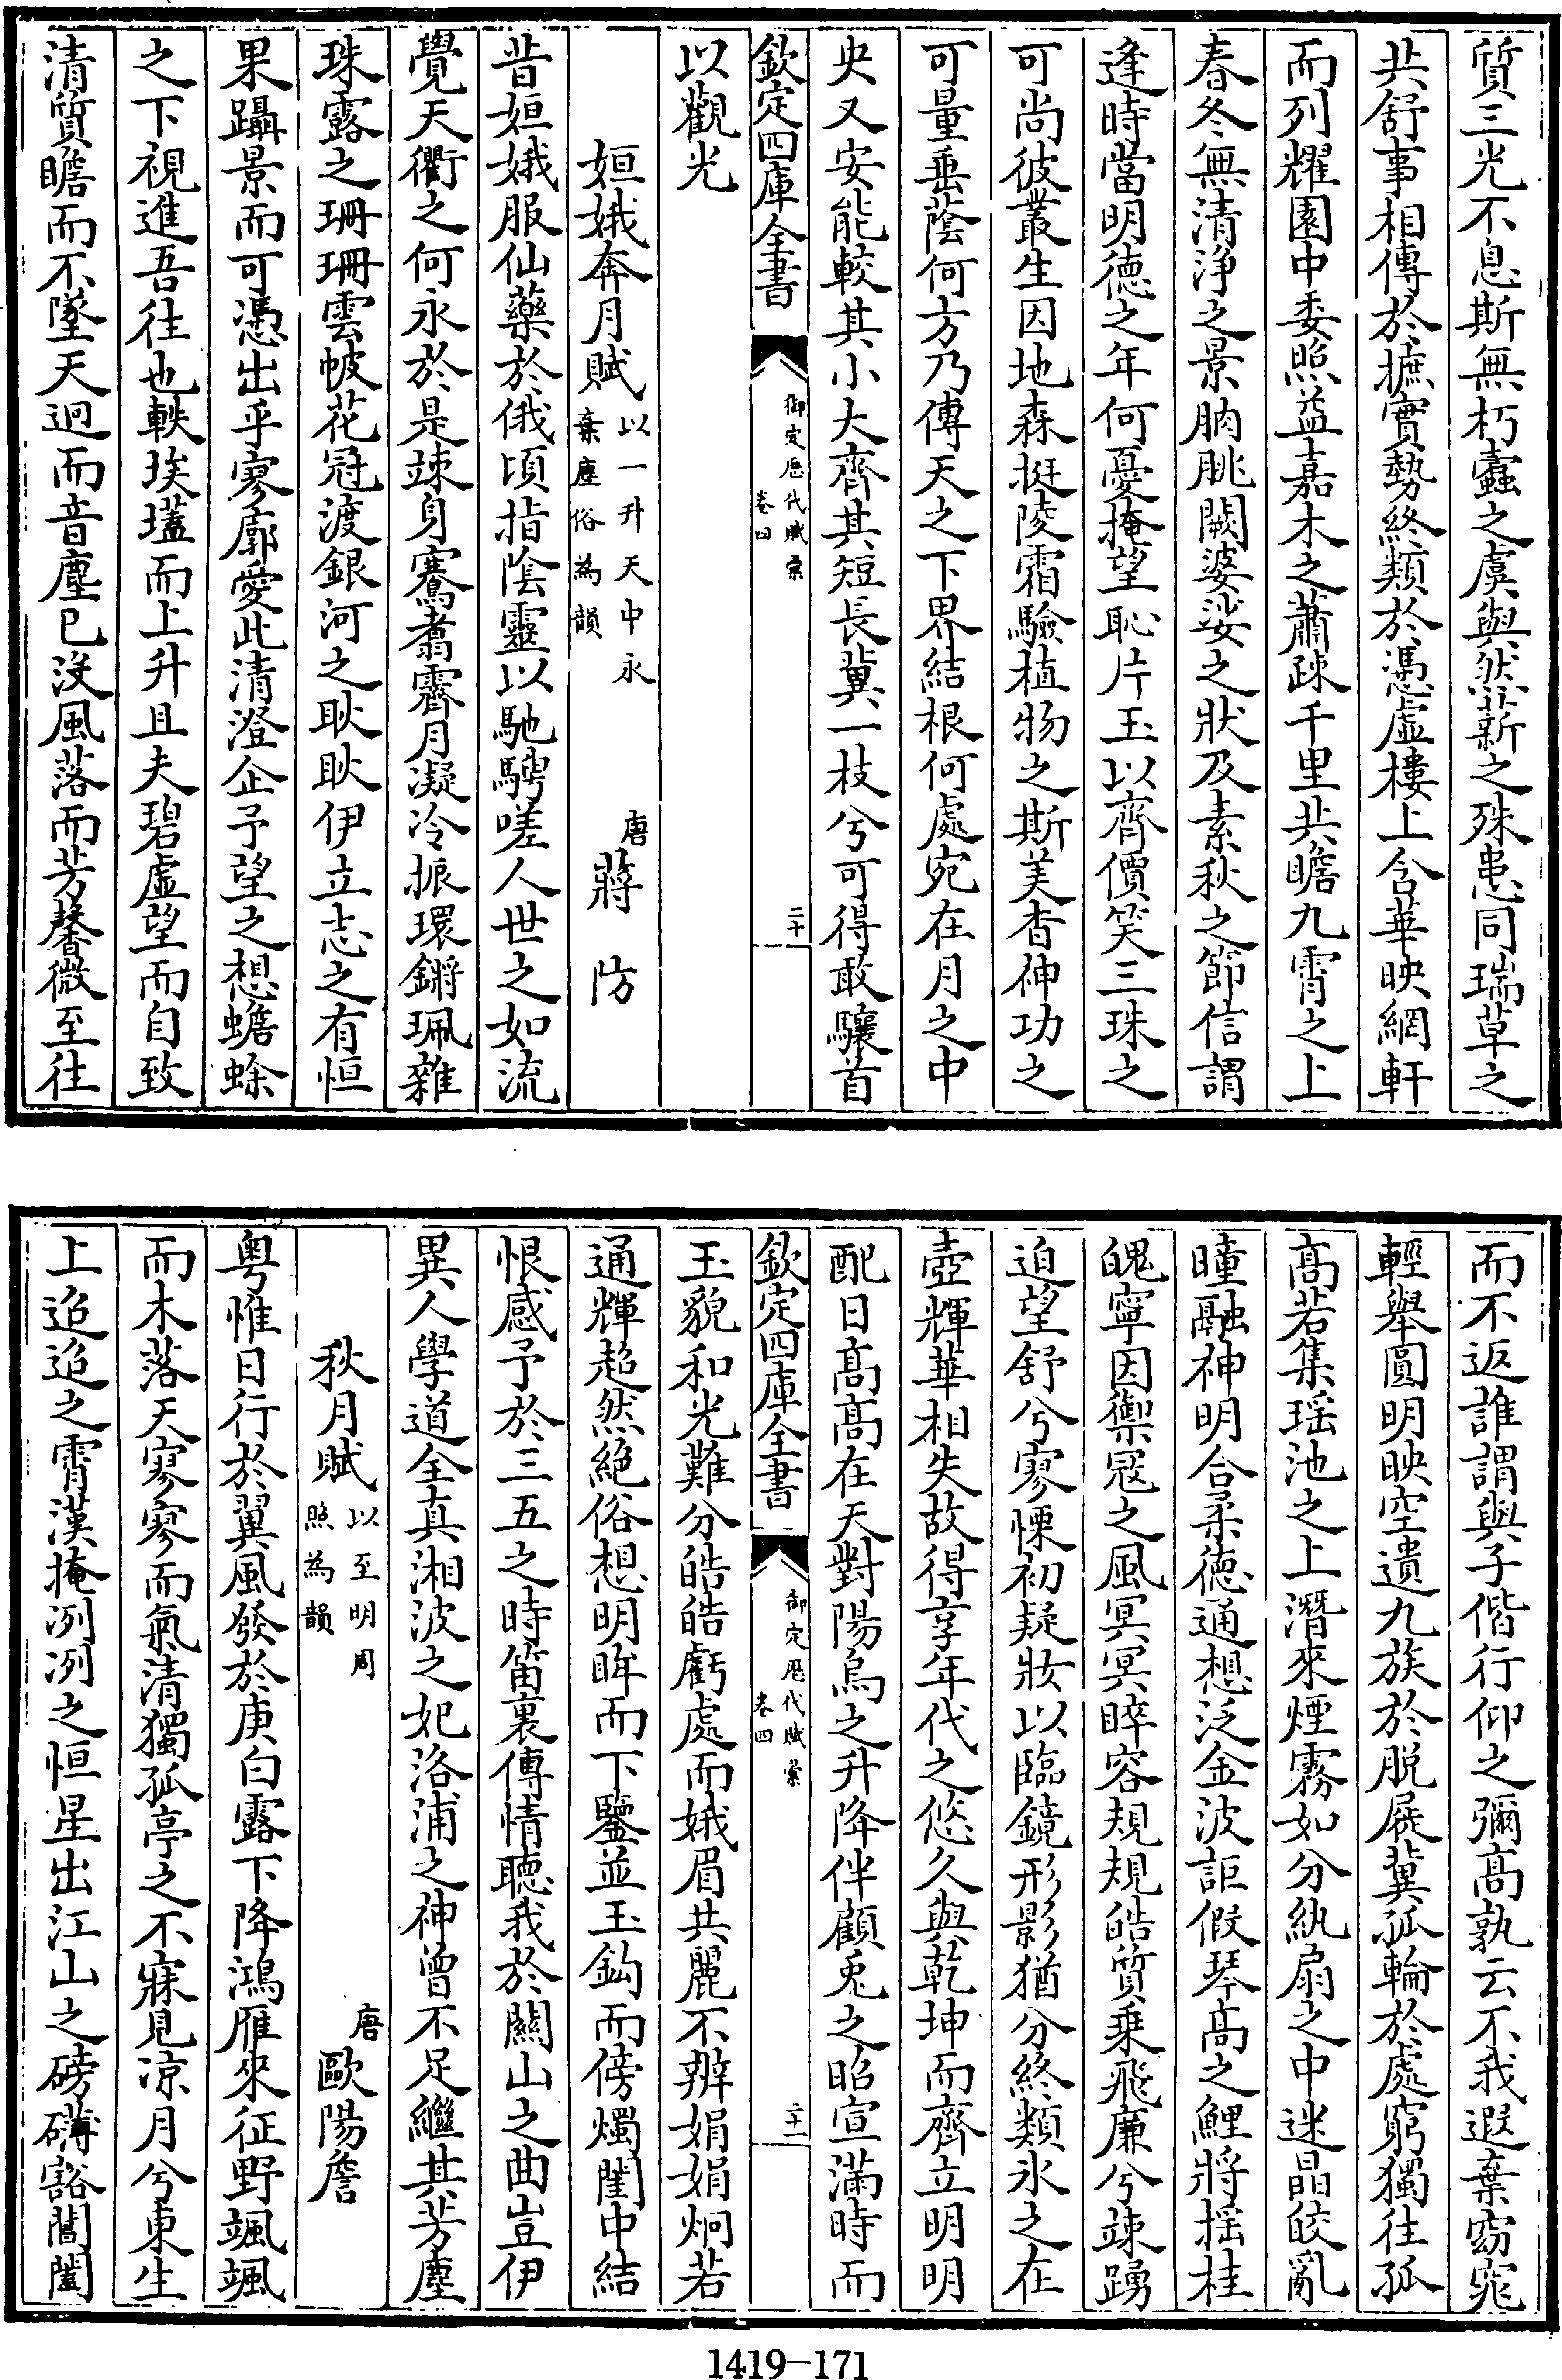 質三光不息斯無朽蠹之虞與然薪之殊患同瑞草之
共舒事相傳於摭實勢終類於憑虚樓上含華映網軒
而列耀園中委照益嘉木之蕭疎千里共瞻九霄之上
春冬無清浄之景朒朓闕婆娑之狀及素秋之節信謂
逢時當明德之年何憂掩望恥片玉以齊價笑三珠之
可尚彼叢生因地森挺陵霜驗植物之斯美杳神功之
可量垂蔭何方乃傳天之下界結根何處宛在月之中
央又安能較其小大齊其短長冀一枝兮可得敢驤首
欽定四庫全書 御定歴代賦彙 卷四 二十
以觀光
姮娥奔月賦 以一升天中永
棄塵俗為韻 唐 蔣防
昔姮娥服仙藥於俄頃指陰靈以馳騁嗟人世之如流
覺天衢之何永於是竦身騫翥霽月凝冷振環鏘珮雜
珠露之珊珊雲帔花冠渡銀河之耿耿伊立志之有恒
果躡景而可憑出乎寥廓愛此清澄企予望之想蟾蜍
之下視進吾往也軼埃壒而上升且夫碧虚望而自致
清質瞻而不墜天迥而音塵已沒風落而芳馨微至往
而不返誰謂與子偕行仰之彌高孰云不我遐棄窈窕
輕舉圓明映空遺九族於脱屣冀孤輪於處窮獨往孤
高若集瑶池之上潛來煙霧如分紈扇之中迷晶皎亂
曈融神明合柔德通想泛金波詎假琴高之鯉將揺桂
魄寧因禦寇之風冥冥睟容規規皓質乗飛廉兮竦踴
迫望舒兮寥慄初疑妝以臨鏡形影猶分終類氷之在
壺輝華相失故得享年代之悠久與乾坤而齊立明明
配日高高在天對陽烏之升降伴顧兎之昭宣滿時而
欽定四庫全書 御定歴代賦彙 卷四 二十一
玉貌和光難分皓皓虧處而娥眉共麗不辨娟娟炯若
通輝超然絶俗想明眸而下鑒並玉鈎而傍燭閨中結
恨感予於三五之時笛裏傳情聴我於關山之曲豈伊
異人學道全真湘波之妃洛浦之神曾不足繼其芳塵
秋月賦 以至明周
照為韻 唐 歐陽詹
粤惟日行於翼風發於庚白露下降鴻雁來征野颯颯
而木落天寥寥而氣清獨孤亭之不寐見凉月兮東生
上迢迢之霄漢掩冽冽之恒星出江山之磅礴豁閶闔
1419-171